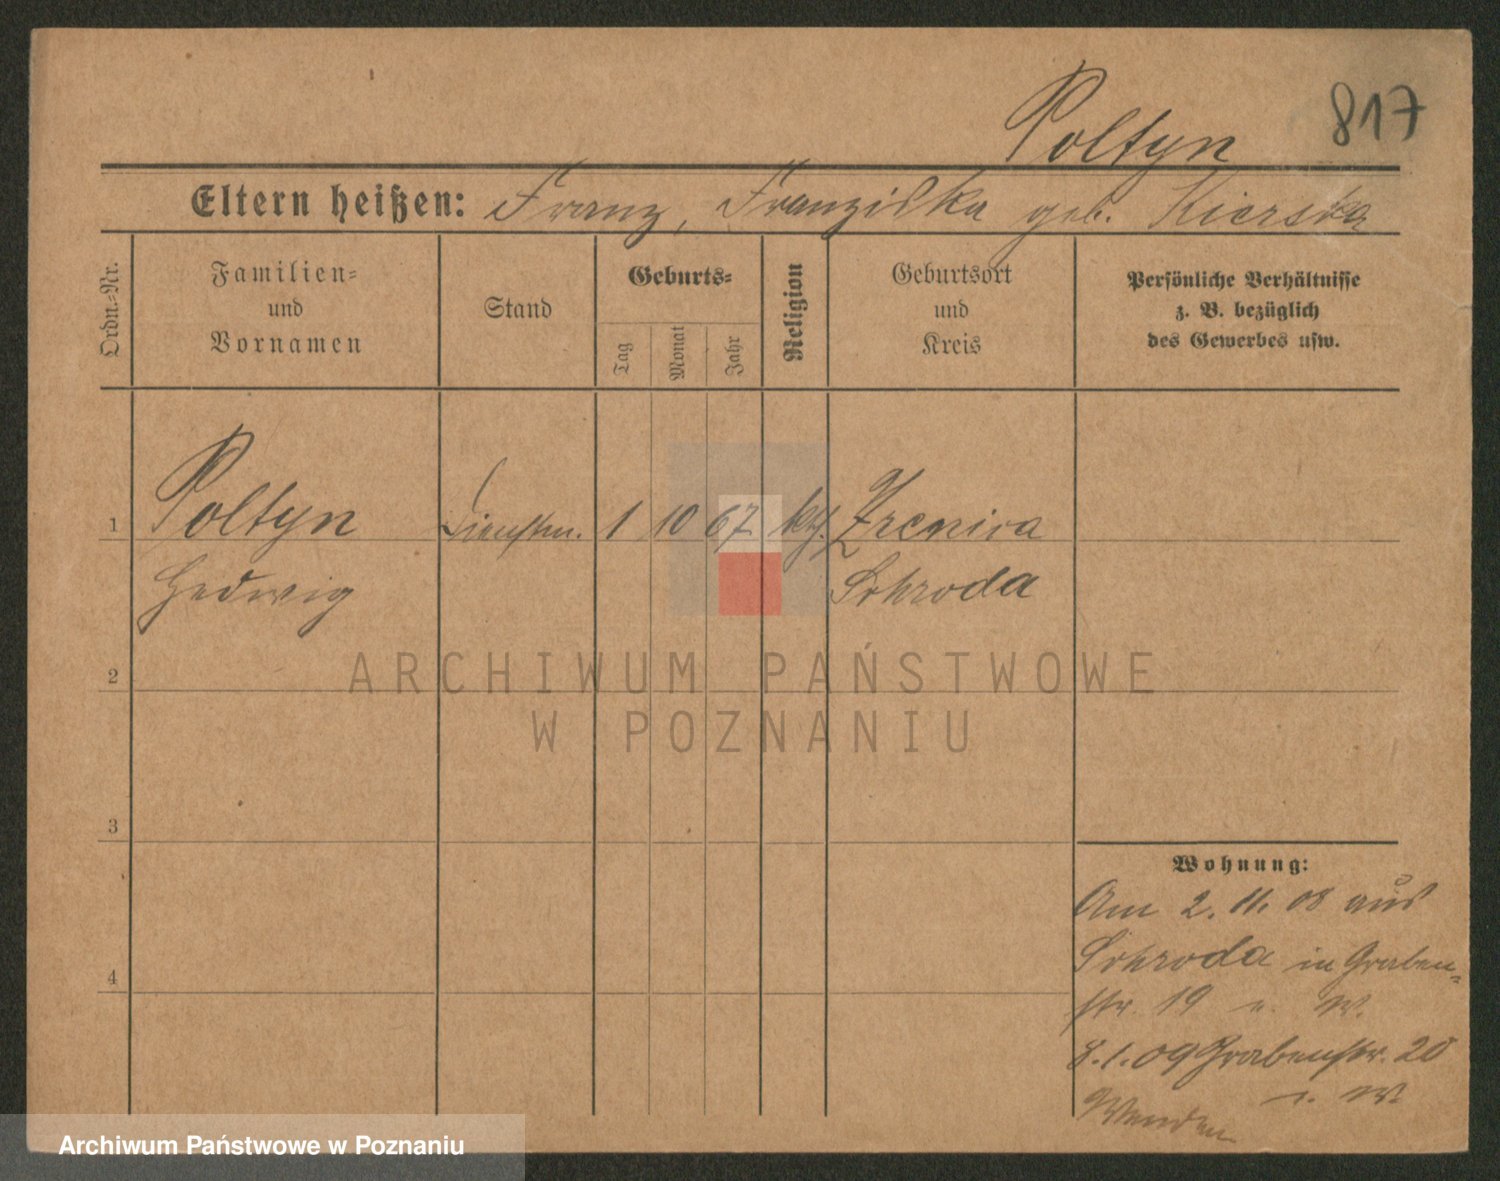 817
Poltyn
Eltern heißen: Franz, Franziska geb. Kierska
Ordn.-Nr.
Familien-
und
Vornamen
Stand
Geburts-
Tag
Monat
Jahr
Religion
Geburtsort
und
Kreis
Persönliche Verhältnisse
z. B. bezüglich
des Gewerbes usw.
1
Poltyn
Hedwig
Dienstm.
1 10 67 kth.
Zrenica
Schroda
2
ARCHIWUM PAŃSTWOWE
W POZNANIU
3
4
Wohnung:
Am 2. 11. 08 aus
Schroda in Graben-
str. 19
8.1.09 Grabenstr. 20
Wenden
Archiwum Państwowe w Poznaniu